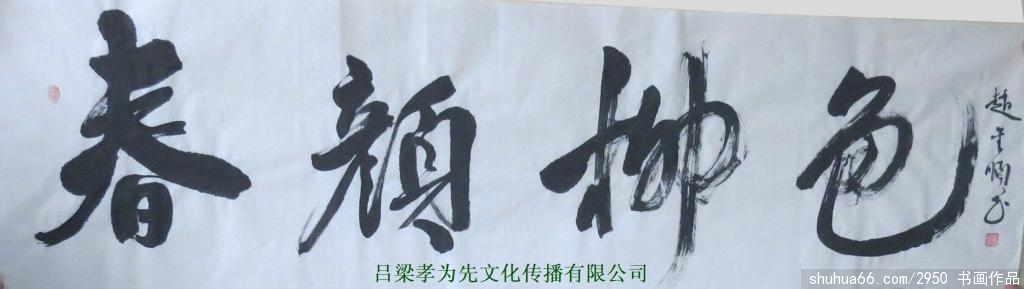 春颜柳色
吕梁孝为先文化传播有限公司
shuhua66.com/2950 书画作品